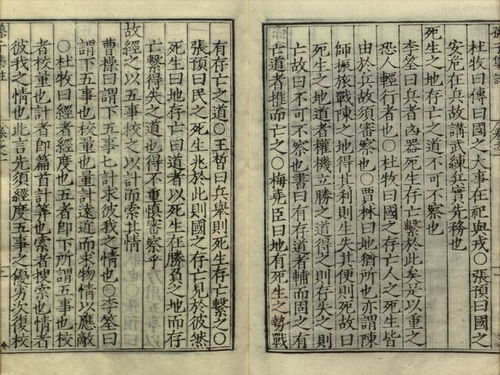 杜牧曰傳曰國之大事在祀與戎○張預曰國之
安危在兵故講武練兵實先務也
死生之地存亡之道不可不察也
李筌曰兵者凶器死生存亡繫於此矣是以重之
恐人輕行者也○杜牧曰國之存亡人之死生皆
由於兵故須審察也○賈林曰地猶所也亦謂陳
師振旅戰陳之地得其利則生失其便則死故曰
死生之地道者權機立勝之道得之則存失之則
亡故曰不可不察也書曰有存道者輔而固之有
亡道者推而亡之○梅堯臣曰地有死生之勢戰
有存亡之道○王晳曰兵舉則死生存亡繫之○
張預曰民之死生兆於此則國之存亡見於彼然
死生曰地存亡曰道者以死生在勝負之地而存
亡繫得失之道也得不重慎審察乎
故經之以五事校之以計而索其情
曹操曰謂下五事七計求彼我之情也○李筌曰
謂下五事也校量也量計遠近而求物情以應敵
○杜牧曰經者經度也五者即下所謂五事也校
者校量也計者即篇首計等也索者搜索也情者
彼我之情也此言先須經度五事之優劣次復校